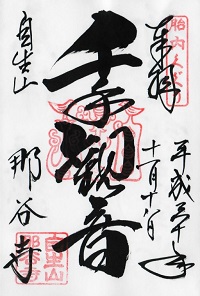 奉拝
胎内くぐり
平成三十年
十一月十八日
千手観音
自生山
那谷寺
自生山
那谷寺